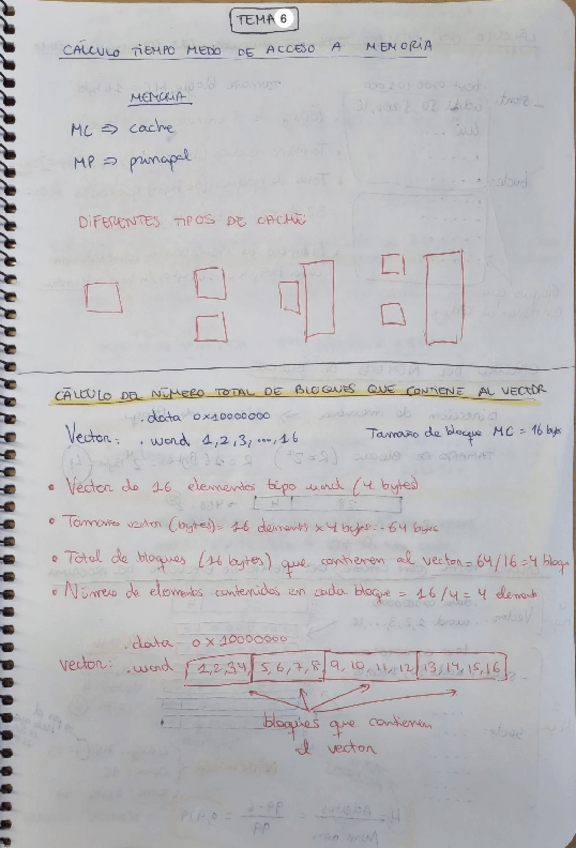 TEMA 6
CÁLCULO TIEMPO MEDIO DE ACCESO A MEMORIA
MEMORIA
MC ⇒ cache
MP ⇒ principal
DIFERENTES TIPOS DE CACHÉ
CÁLCULO DEL NÚMERO TOTAL DE BLOQUES QUE CONTIENE AL VECTOR
.data 0x10000000
Vector: .word 1,2,3,...,16 Tamaño de bloque MC = 16 bytes
• Vector de 16 elementos tipo word (4 bytes)
• Tamaño vector (bytes) = 16 elements x 4 bytes = 64 bytes
• Total de bloques (16 bytes) que contienen al vector = 64/16 = 4 bloqu
• Número de elementos contenidos en cada bloque = 16/4 = 4 element
.data 0x10000000
vector: .word 1,2,3,4, 5,6,7,8, 9,10,11,12, 13,14,15,16
bloques que contienen
al vector